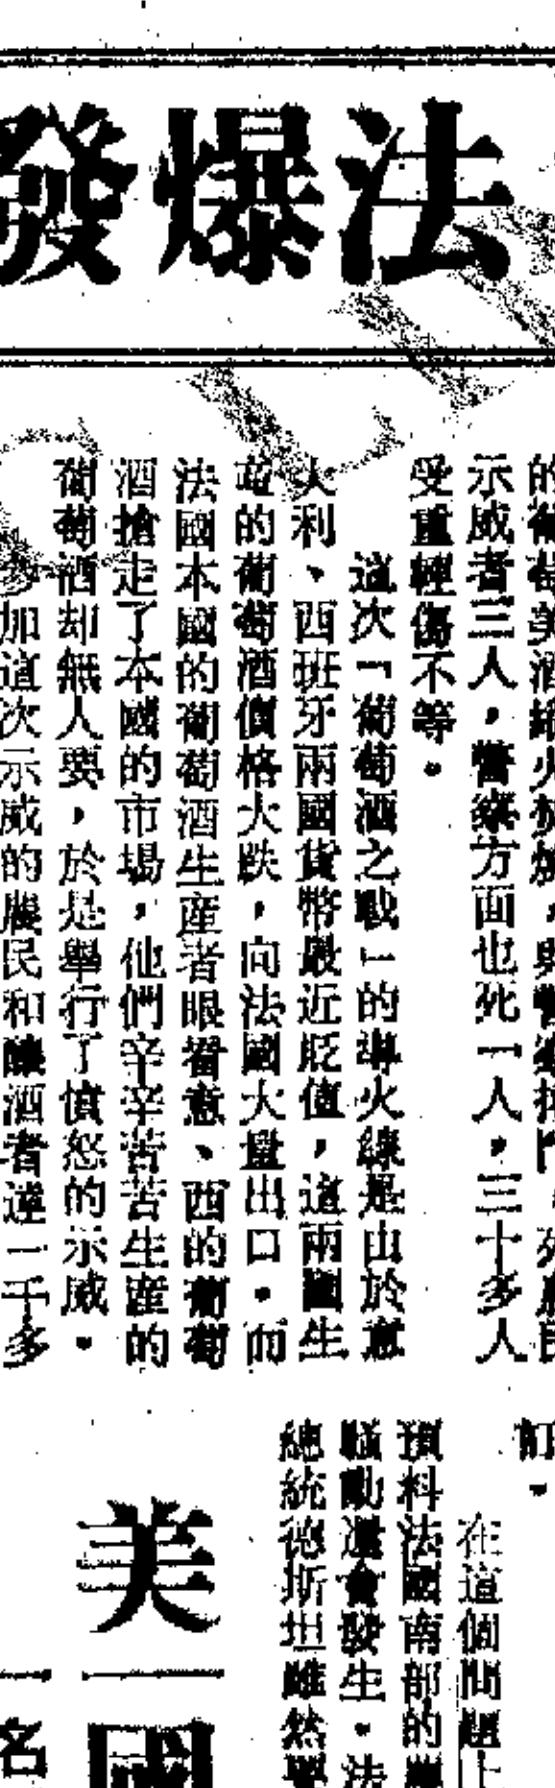 法爆發
示威者三人，警察方面也死一人，三十多人
受重輕傷不等。
這次「葡萄酒之戰」的導火線是由於意
大利、西班牙兩國貨幣最近貶值，這兩國生
產的葡萄酒價格大跌，向法國大量出口。而
法國本國的葡萄酒生産者眼看意、西的葡萄
酒搶走了本國的市場，他們辛辛苦苦生産的
葡萄酒却無人要，於是舉行了憤怒的示威。
參加這次示威的農民和釀酒者達一千多
在這個問題上
預料法國南部的
騷動還會發生。法
總統德斯坦雖然
美國
一名